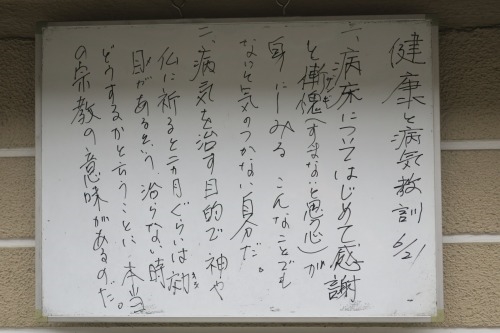 健康と病気教訓 6/21
一、病床についてはじめて感謝
と慚愧(すまないと思う心)が
身にしみる こんなことでも
ないと気のつかない自分だ。
二、病気を治す目的で神や
仏に祈ると二カ月ぐらいは効
目があるという、治らない時
どうするかと言うことに本当
の宗教の意味があるのだ。